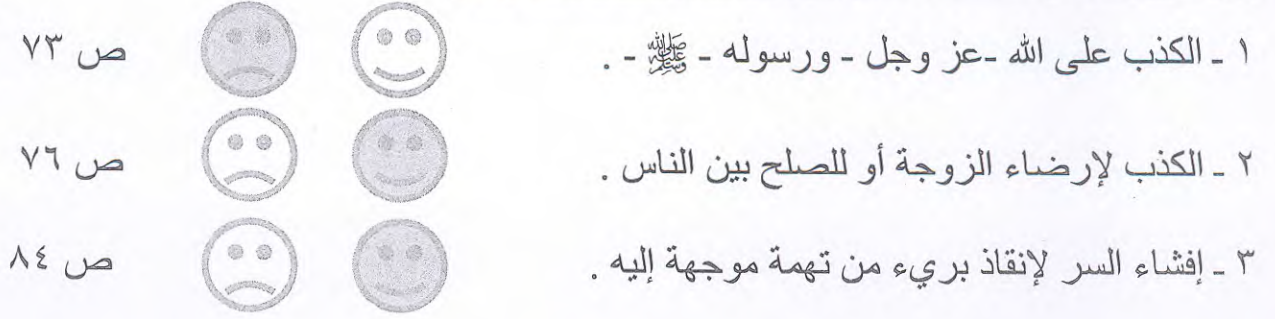 ١ - الكذب على الله -عز وجل - ورسوله - ﷺ - . ص ٧٣
٢ - الكذب لإرضاء الزوجة أو للصلح بين الناس . ص ٧٦
٣ - إفشاء السر لإنقاذ بريء من تهمة موجهة إليه . ص ٨٤